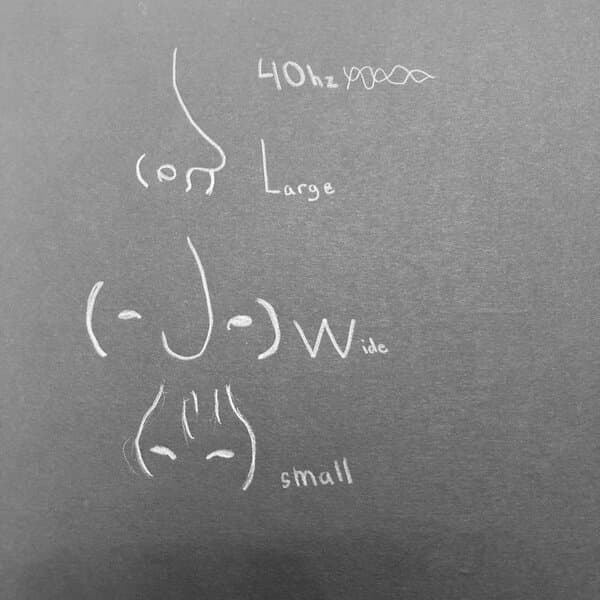 40hz
Large
Wide
small